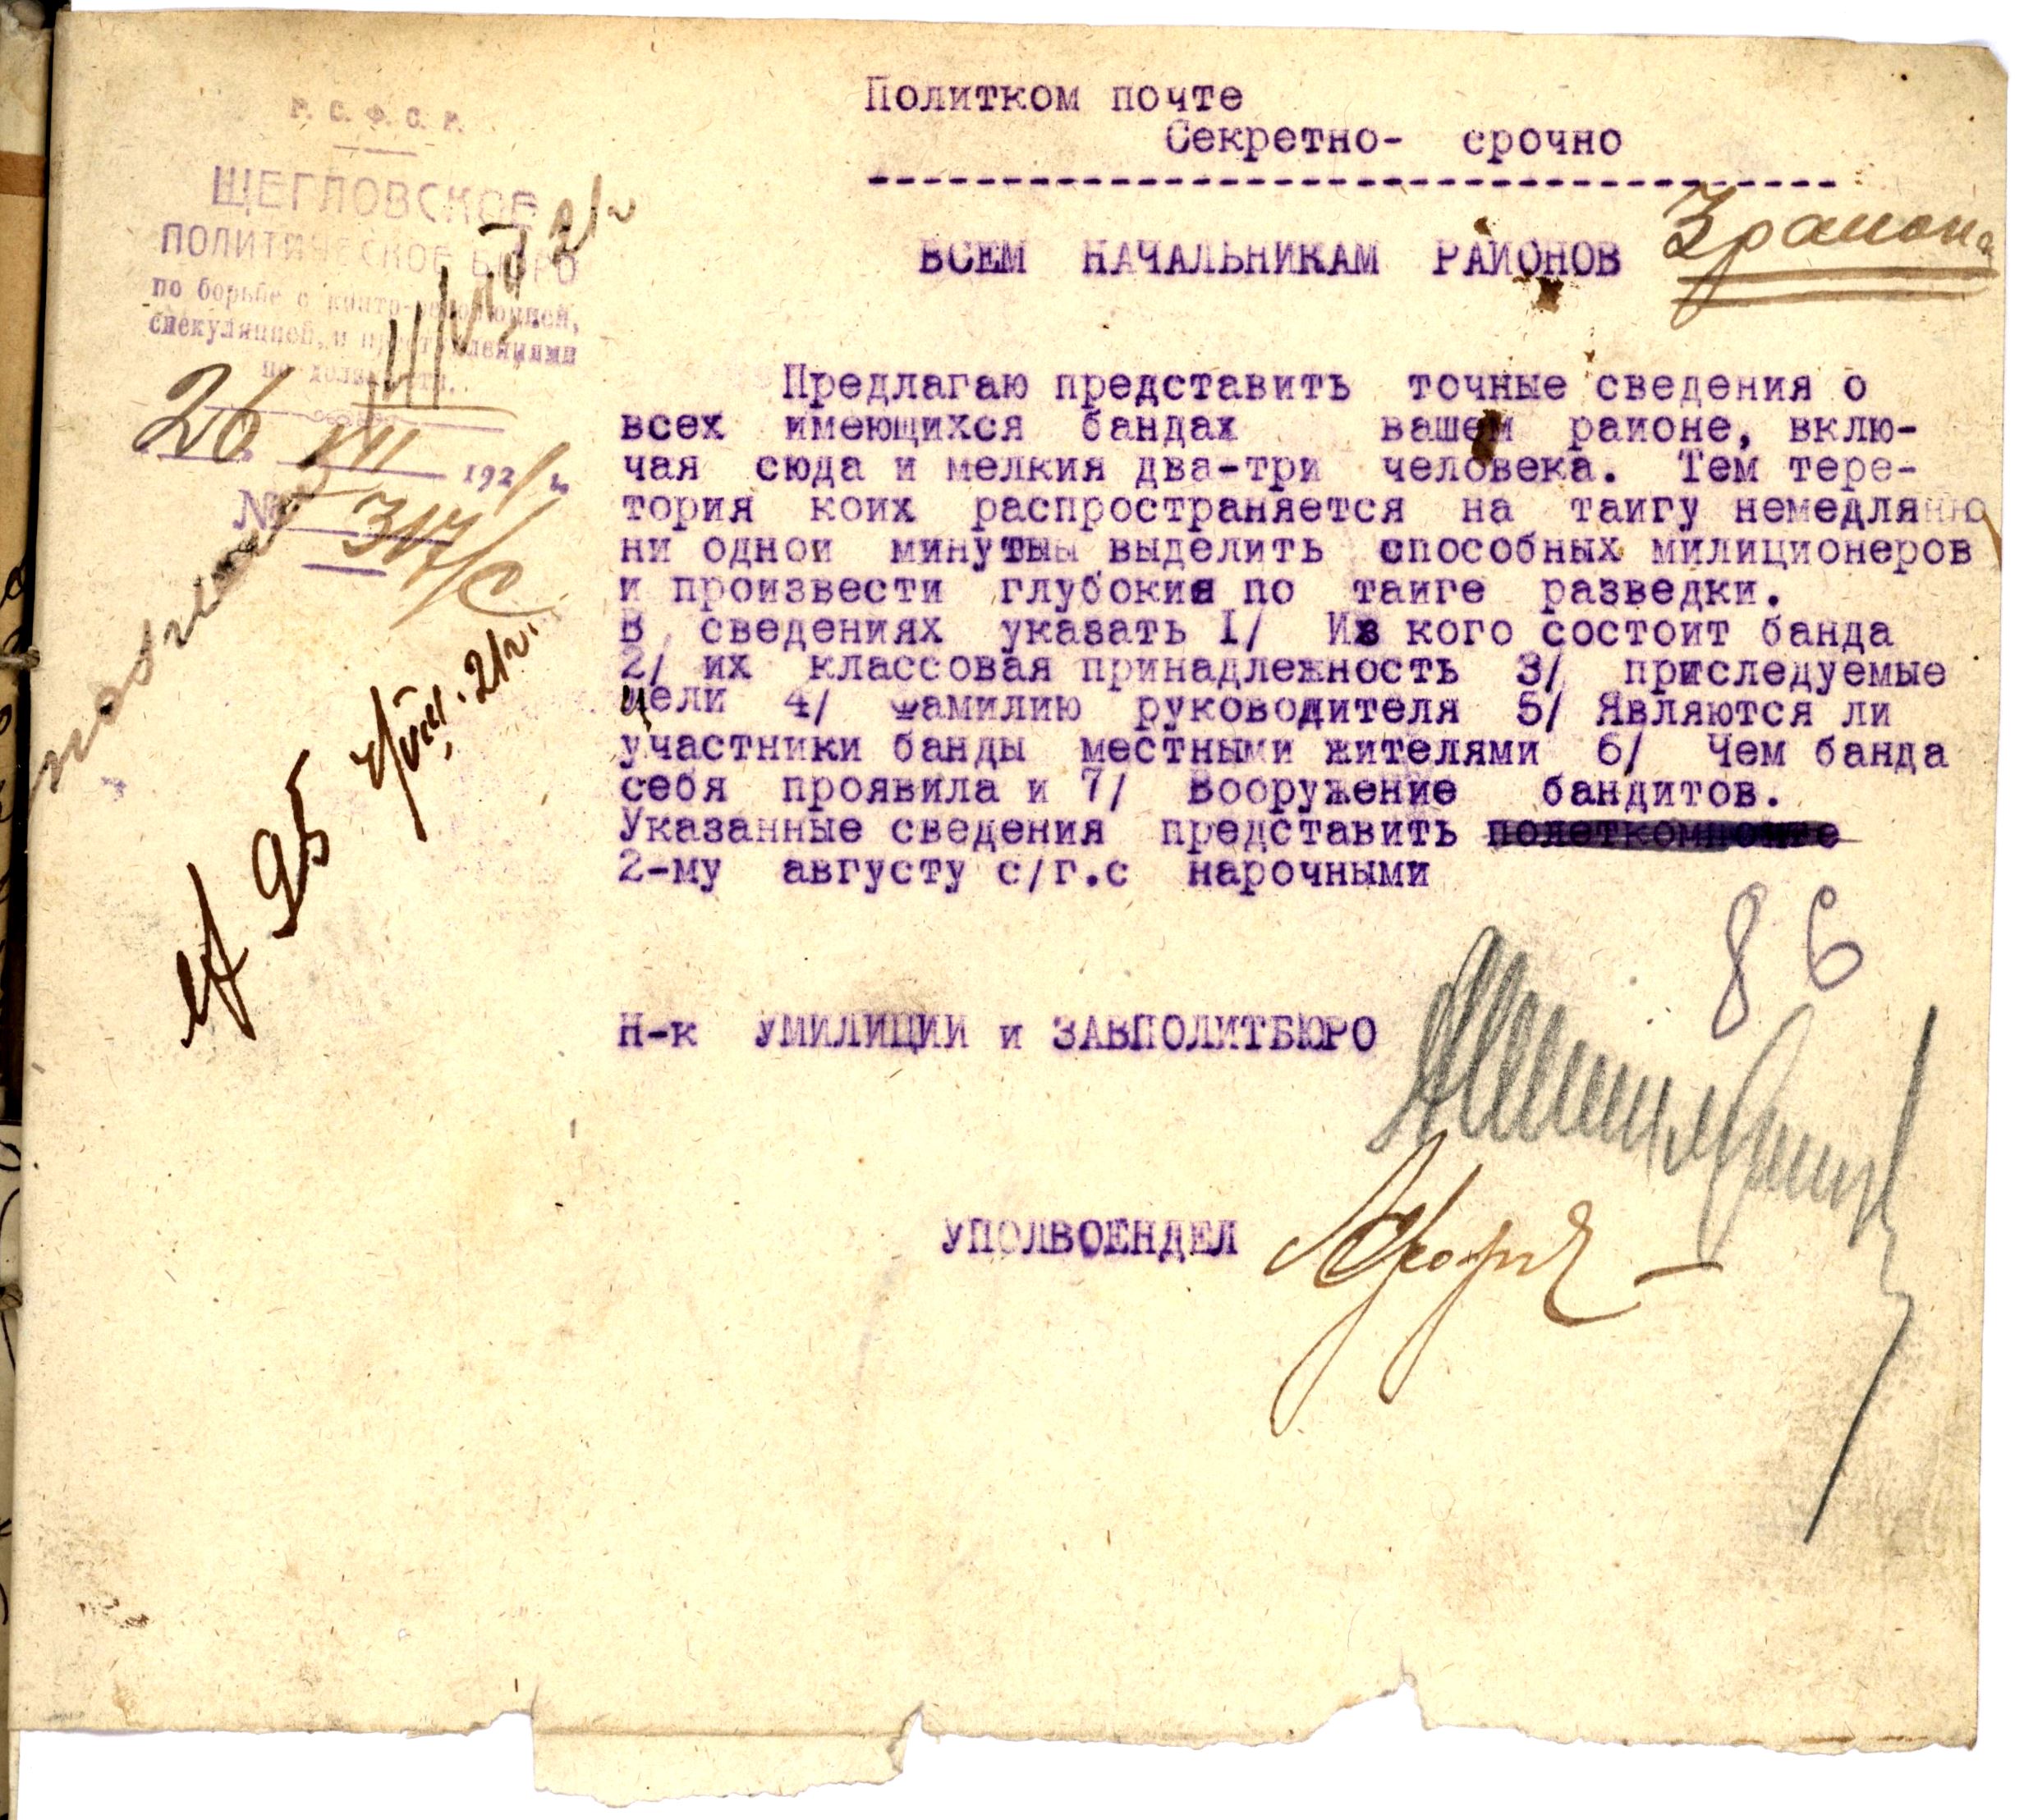 Р. С. Ф. С. Р.
ЩЕГЛОВСКОЕ
ПОЛИТИЧЕСКОЕ БЮРО
по борьбе с контр-революцией,
спекуляцией, и преступлениями
по должности.
26 VII 1921 г.
№ 317/С
Политком почте
Секретно- срочно
ВСЕМ НАЧАЛЬНИКАМ РАИОНОВ 3 раиона
Предлагаю представить точные сведения о
всех имеющихся бандах вашем раионе, вклю-
чая сюда и мелкия два-три человека. Тем тере-
тория коих распространяется на таигу немедлянно
ни однои минуты выделить способных милиционеров
и произвести глубокия по таиге разведки.
В сведениях указать I/ Из кого состоит банда
2/ их классовая принадлежность 3/ приследуемые
цели 4/ фамилию руководителя 5/ Являются ли
участники банды местными жителями 6/ Чем банда
себя проявила и 7/ Вооружение бандитов.
Указанные сведения представить полеткомпочте
2-му августу с/г.с нарочными
86
Н-к УМИЛИЦИИ и ЗАВПОЛИТБЮРО
УПОЛВОЕНДЕЛ